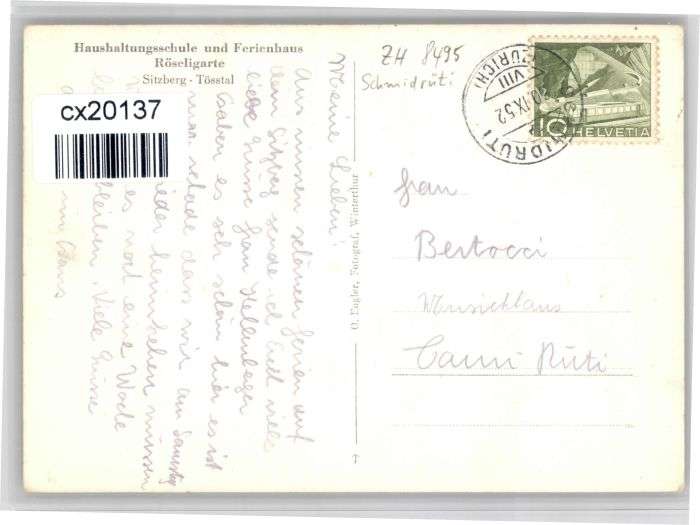 Haushaltungsschule und Ferienhaus
Röseligarte
Sitzberg - Tösstal
cx20137
Meine Lieben!
Aus unsern schönen Ferien auf
dem Sitzberg sende ich Euch viele
liebe Grüsse Frau
haben es sehr schön hier es ist
schade dass wir am Samstag
wieder heimkehren müssen
es noch eine Woche
bleiben. Viele Grüsse
O. Engler, Fotograf, Winterthur
ZH 8495
Schmidrüti
SCHMIDRÜTI
(ZÜRICH)
VIII
IX.52
10
HELVETIA
Frau
Bertocci
Musikhaus
Tann Rüti